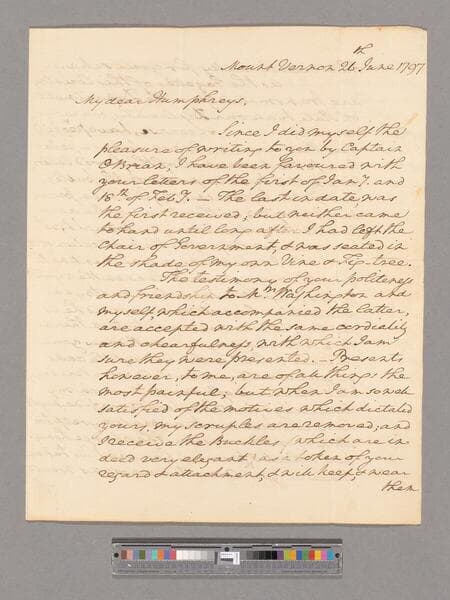 Mount Vernon 26th June 1797
My dear Humphreys,
Since I did myself the
pleasure of writing to you by Captain
OBrian, I have been favoured with
your letters of the first of Jany. and
18th of Feby. — The last in date, was
the first received; but neither came
to hand until long after I had left the
Chair of Government, & was seated in
the shade of my own Vine & Fig-tree.
The testimony of your politeness
and friendship to Mrs. Washington and
myself, which accompanied the latter,
are accepted with the same cordiality
and chearfulness, with which I am
sure they were presented. — Presents
however, to me, are of all things the
most painful; but when I am so well
satisfied of the motives which dictated
yours, my scruples are removed; and
I receive the Buckles (which are in
deed very elegant) as a token of your
regard & attachment; & will keep, & wear
them